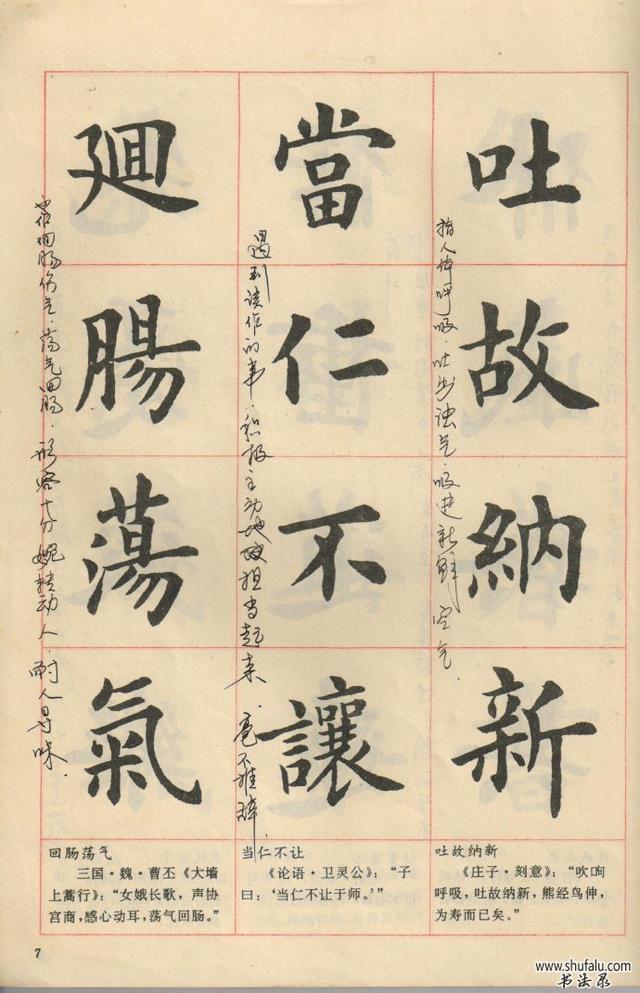 吐故納新
指人体呼吸.吐出浊气.吸进新鲜空气.
當仁不讓
遇到该作的事.积极主动地
担当起来.毫不推辞.
廻腸蕩氣
回肠伤气.荡气回肠.形容十分婉转动人.耐人寻味.
回肠荡气
三国·魏·曹丕《大墙
上蒿行》：“女娥长歌，声协
宫商，感心动耳，荡气回肠。”
当仁不让
《论语·卫灵公》：“子
曰：‘当仁不让于师。’”
吐故纳新
《庄子·刻意》：“吹呴
呼吸，吐故纳新，熊经鸟伸，
为寿而已矣。”
7
www.shufalu.com
书法录